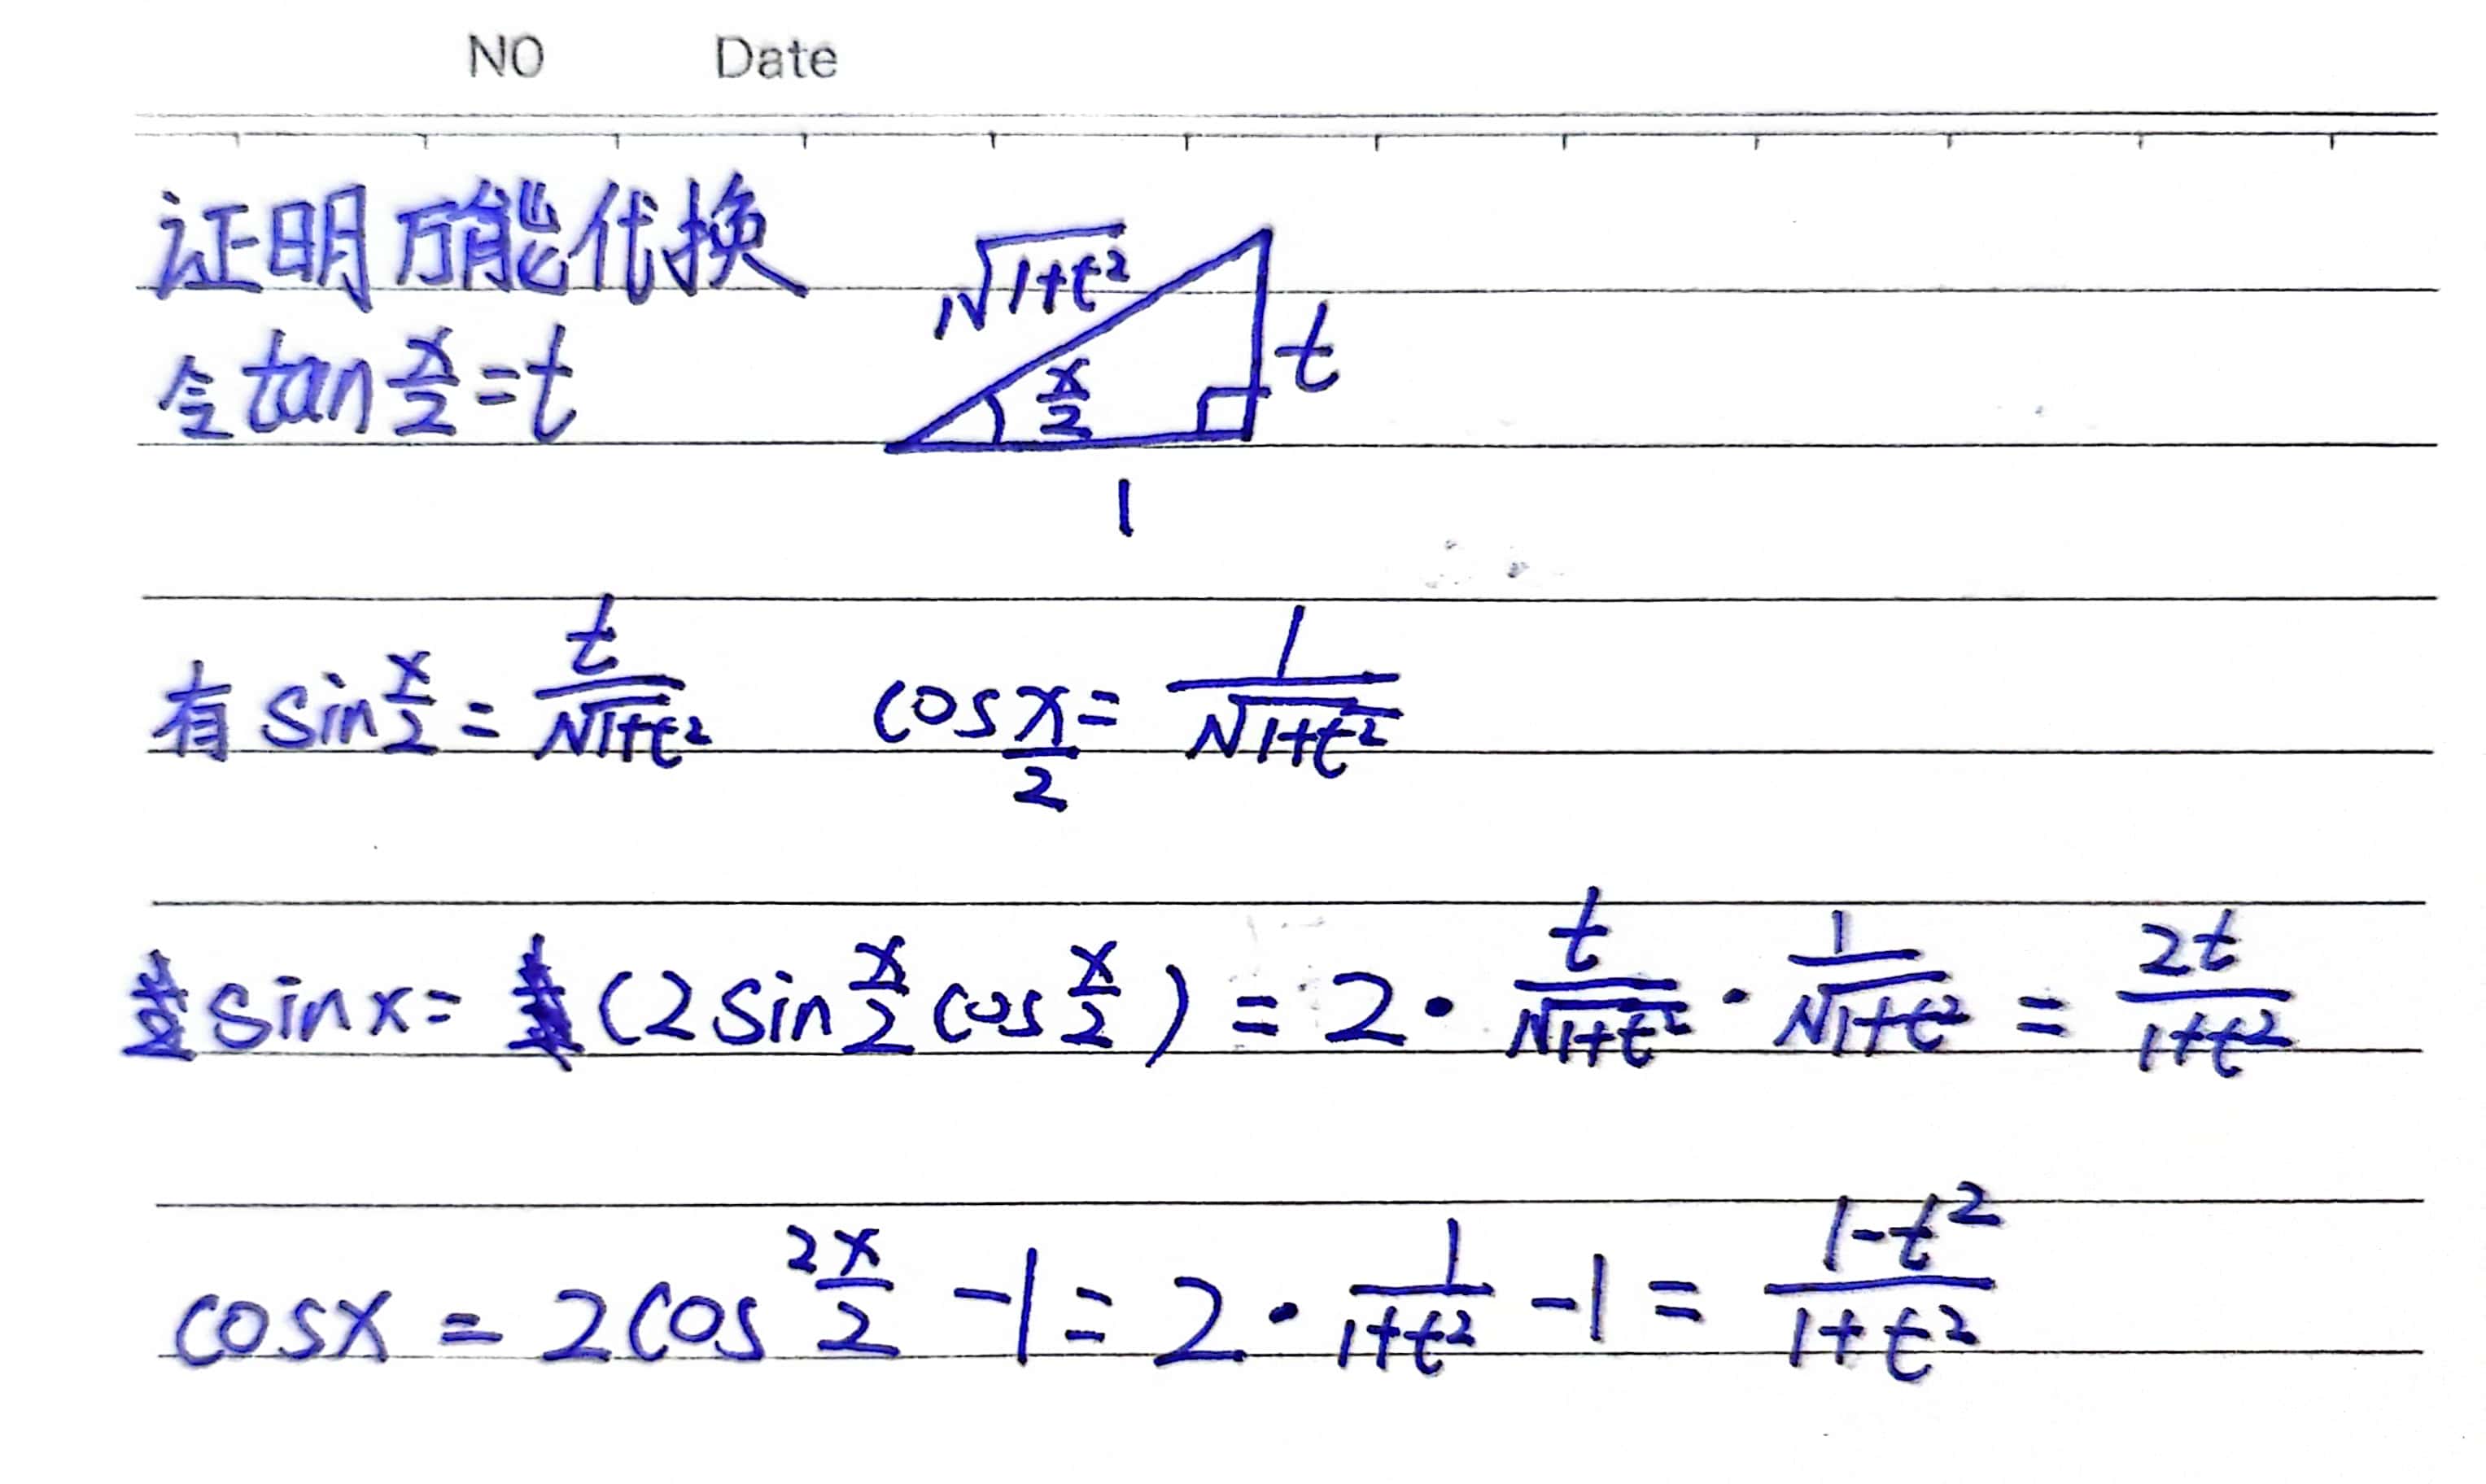 NO Date
证明万能代换
√(1+t²)
令 tan x/2 = t
x/2
t
1
有 sin x/2 = t/√(1+t²) cos x/2 = 1/√(1+t²)
sinx = (2 sin x/2 cos x/2) = 2 · t/√(1+t²) · 1/√(1+t²) = 2t/(1+t²)
cosx = 2cos² x/2 - 1 = 2 · 1/(1+t²) - 1 = (1-t²)/(1+t²)